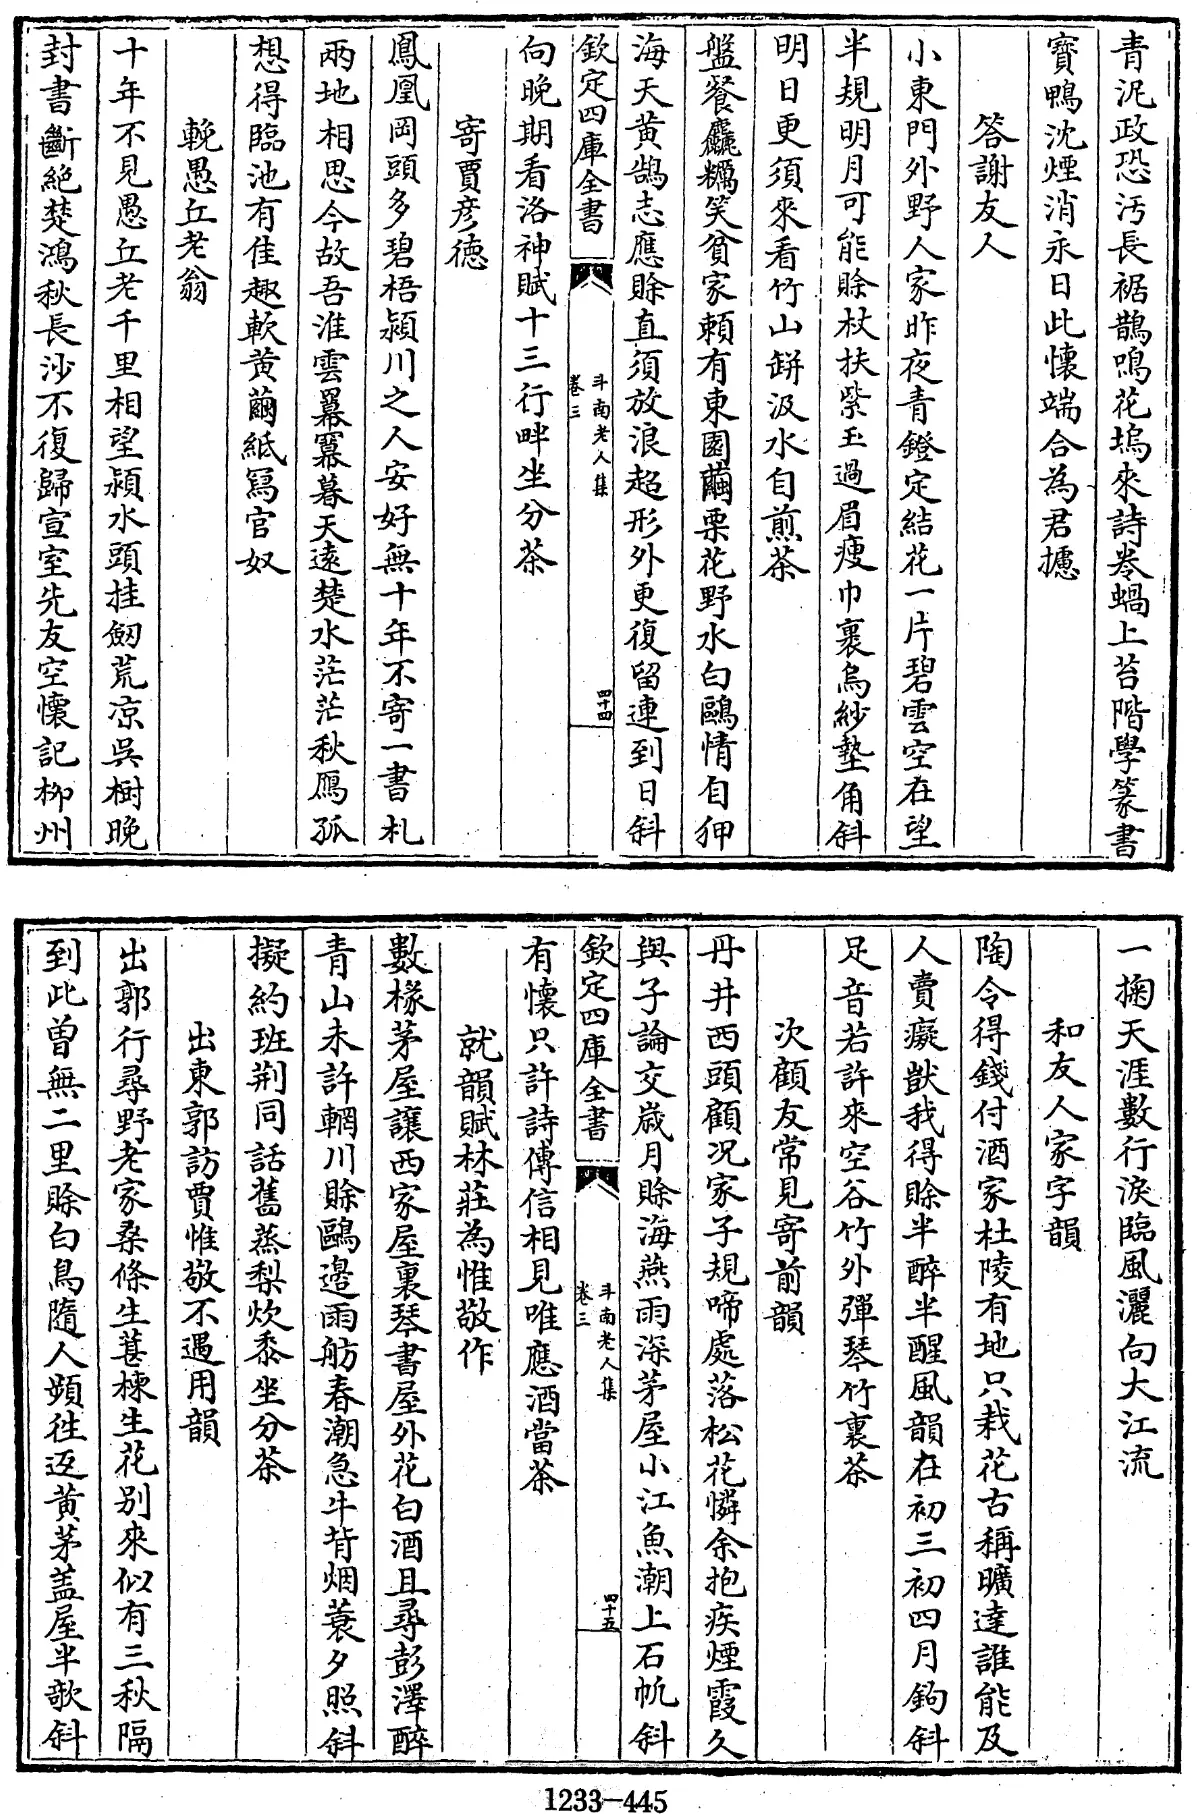 青泥政恐汚長裾鵲鳴花塢來詩卷蝸上苔階學篆書
寶鴨沈煙消永日此懷端合為君攄
答謝友人
小東門外野人家昨夜青鐙定結花一片碧雲空在望
半規明月可能賒杖扶紫玉過眉瘦巾裹烏紗墊角斜
明日更須來看竹山缾汲水自煎茶
盤餐麤糲笑貧家賴有東園繭栗花野水白鷗情自狎
海天黄鵠志應賒直須放浪超形外更復留連到日斜
欽定四庫全書
斗南老人集
卷三
四十四
向晚期看洛神賦十三行畔坐分茶
寄賈彦德
鳳凰岡頭多碧梧潁川之人安好無十年不寄一書札
兩地相思今故吾淮雲羃羃暮天遠楚水茫茫秋鴈孤
想得臨池有佳趣軟黄繭紙寫官奴
輓愚丘老翁
十年不見愚丘老千里相望潁水頭挂劒荒凉吳樹晚
封書斷絶楚鴻秋長沙不復歸宣室先友空懷記柳州
一掬天涯數行淚臨風灑向大江流
和友人家字韻
陶令得錢付酒家杜陵有地只栽花古稱曠達誰能及
人賣癡獃我得賒半醉半醒風韻在初三初四月鉤斜
足音若許來空谷竹外彈琴竹裏茶
次顧友常見寄前韻
丹井西頭顧况家子規啼處落松花憐余抱疾煙霞久
與子論交歲月賒海燕雨深茅屋小江魚潮上石帆斜
欽定四庫全書
斗南老人集
卷三
四十五
有懷只許詩傳信相見唯應酒當茶
就韻賦林莊為惟敬作
數椽茅屋讓西家屋裏琴書屋外花白酒且尋彭澤醉
青山未許輞川賒鷗邊雨舫春潮急牛背烟蓑夕照斜
擬約班荆同話舊蒸梨炊黍坐分茶
出東郭訪賈惟敬不遇用韻
出郭行尋野老家桑條生葚楝生花别來似有三秋隔
到此曽無二里賒白鳥隨人頻徃返黄茅盖屋半欹斜
1233—445